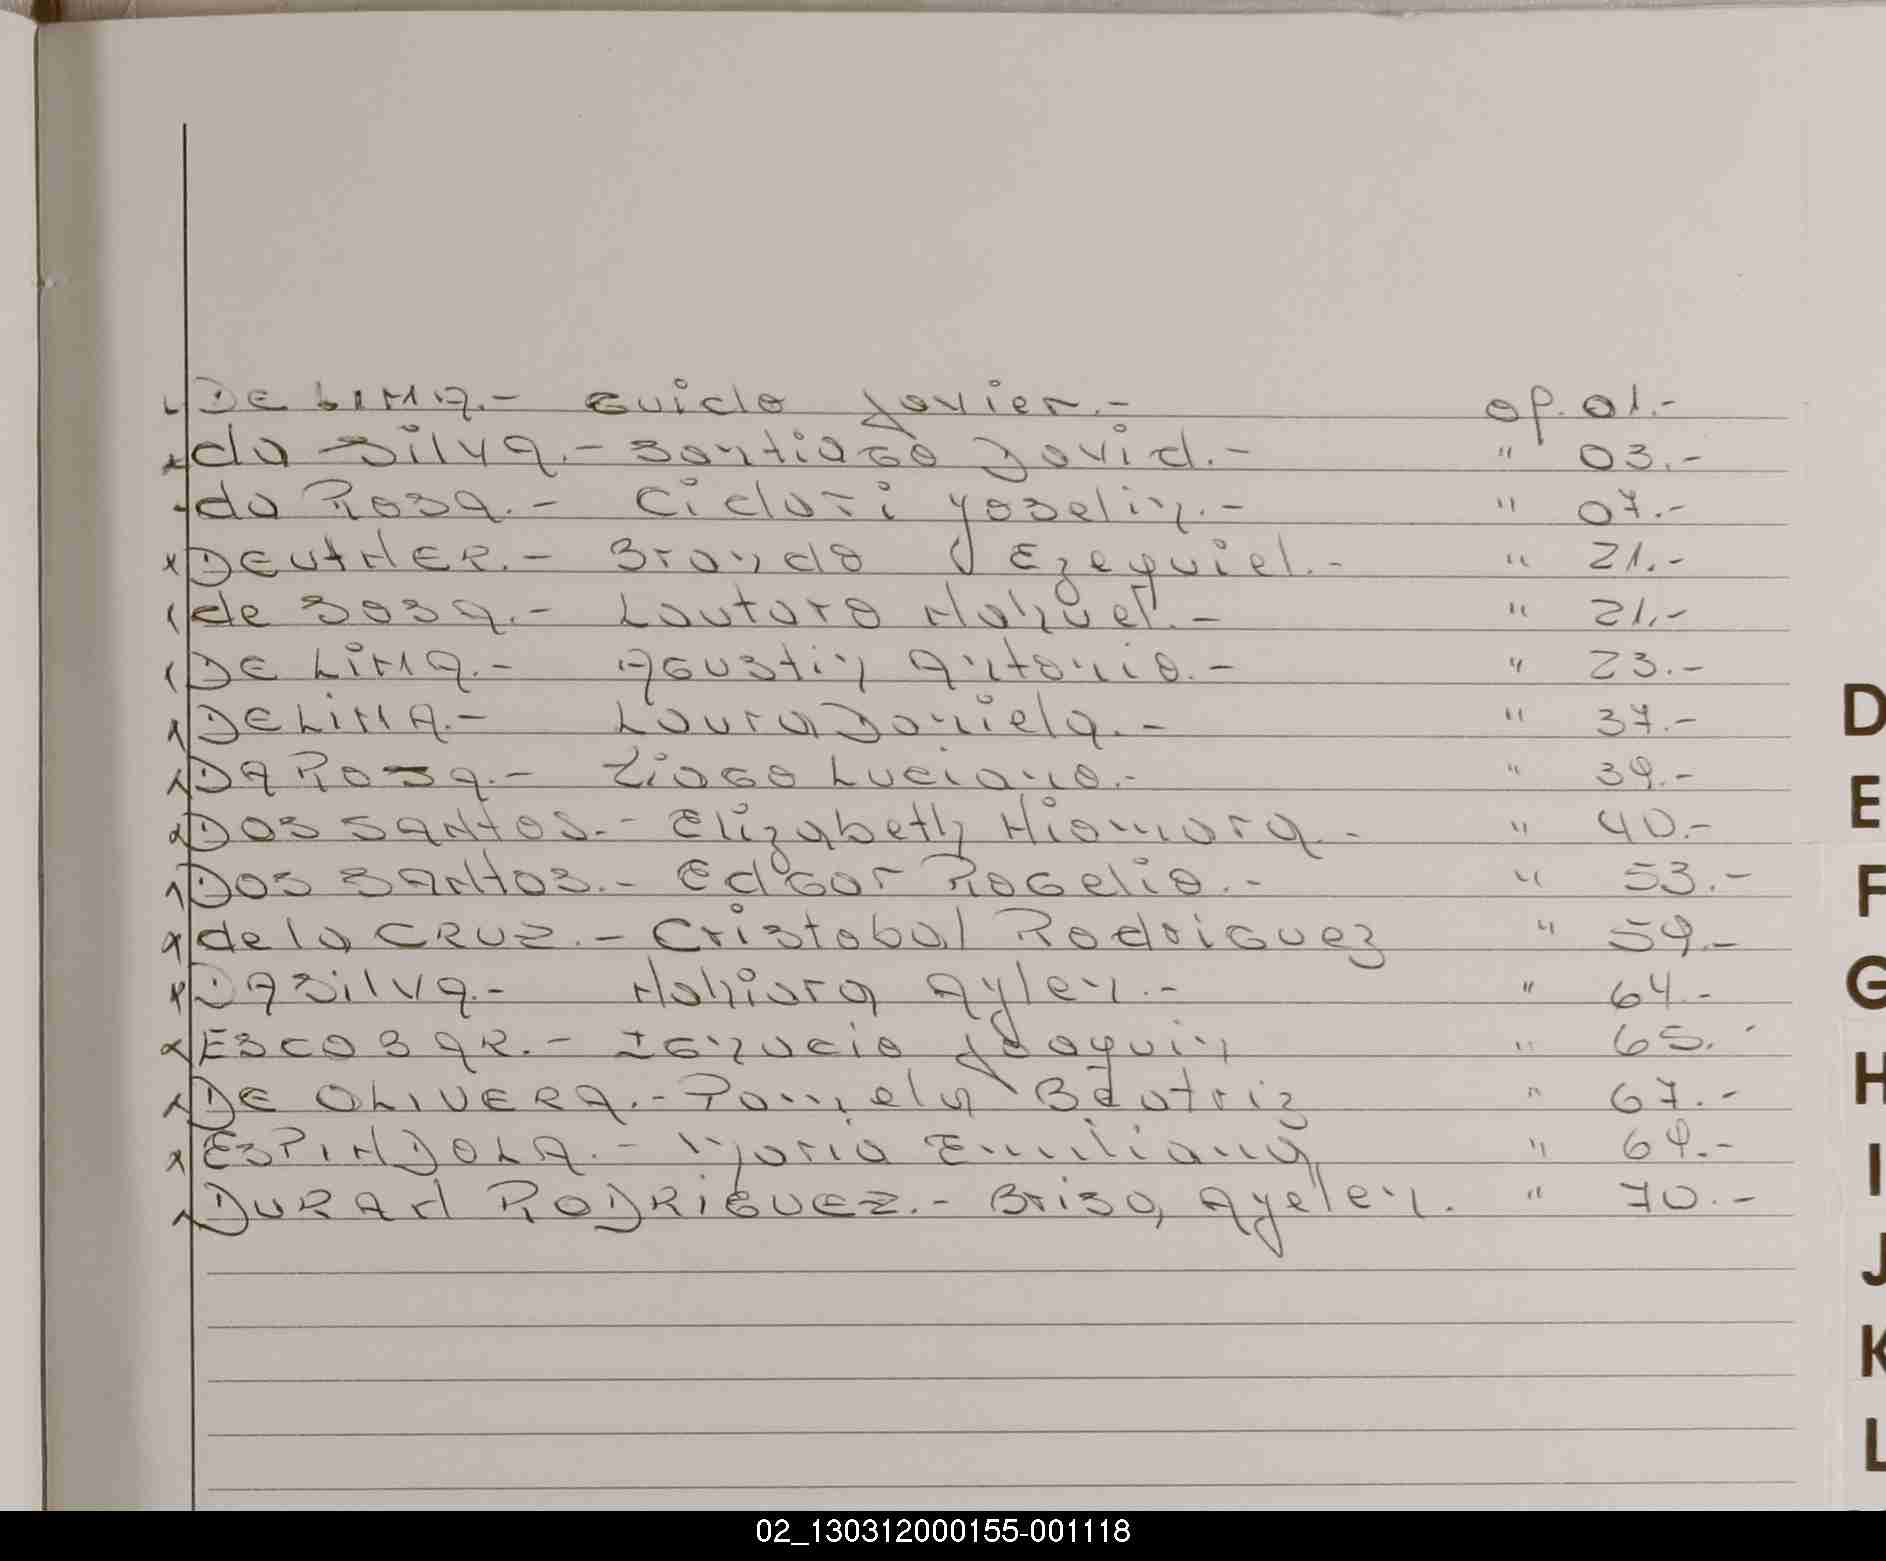 DE LIMA.- Guido Javier.- op. 01.-
da Silva.- Santiago David.- " 03.-
da Rosa.- Cidari Yoselin.- " 07.-
DEUTHER.- Brando Ezequiel.- " 21.-
de Sosa.- Lautaro Nahuel.- " 21.-
DE LIMA.- Agustin Antonio.- " 23.-
DE LIMA.- Laura Daniela.- " 37.-
DA Rosa.- Tiago Luciano.- " 39.-
DOS SANTOS.- Elizabeth Hiomara.- " 40.-
DOS SANTOS.- Edgar Rogelio.- " 53.-
de la CRUZ.- Cristobal Rodriguez " 59.-
DA Silva.- Nahiara Aylen.- " 64.-
ESCOBAR.- Ignacio Joaquin " 65.-
DE OLIVERA.- Pamela Beatriz " 67.-
ESPINDOLA.- Maria Emiliana " 69.-
DURAN RODRIGUEZ.- Brisa, Ayelen. " 70.-
D
E
F
G
H
I
J
K
L
02_130312000155-001118